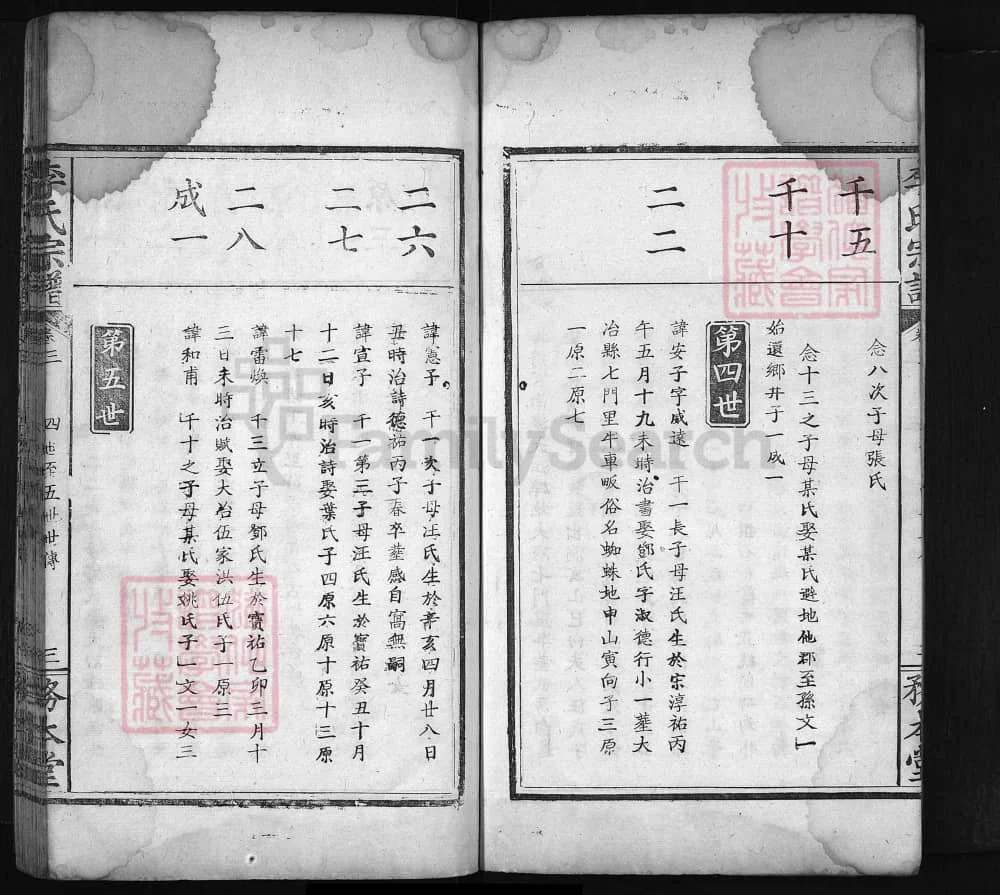 千五
念八次子母張氏
千十
念十三之子母某氏娶某氏避地他郡至孫文一
始還鄉井子一成一
第四世
二二
諱安子字威遠 千一長子母汪氏生於宋淳祐丙
午五月十九未時治書娶鄧氏字淑德行小一葬大
冶縣七門里牛車畈俗名蜘蛛地申山寅向子三原
一原二原七
二六
諱憲子 千一次子母汪氏生於辛亥四月廿八日
丑時治詩德祐丙子春卒葬感自窩無嗣
二七
諱宣子 千一第三子母汪氏生於寶祐癸丑十月
十二日亥時治詩娶葉氏子四原六原十原十三原
十七
二八
諱雷煥 千三立子母鄧氏生於寶祐乙卯三月十
三日未時治賦娶大冶伍家洪伍氏子一原三
成一
諱和甫 千十之子母某氏娶姚氏子一文一女三
第五世
李氏宗譜
卷三
四世至五世世傳
三
務本堂
李氏宗譜
務本堂
FamilySearch